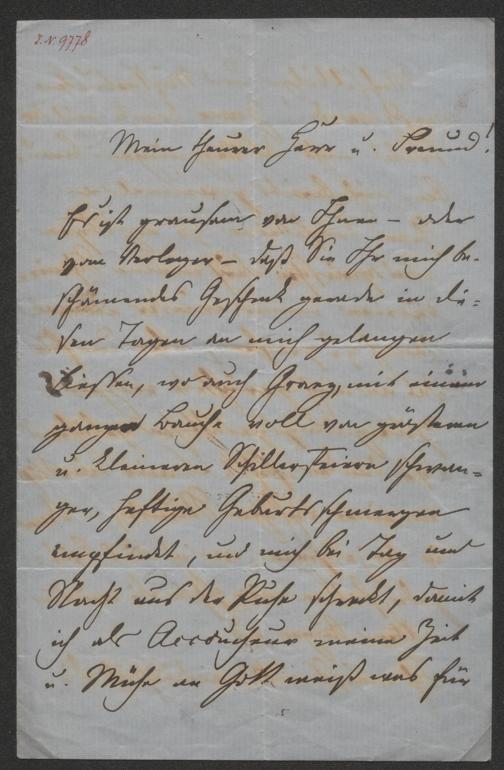 I. N. 9778
Mein theurer Herr u. Freund!
Es ist grausam von Ihnen – oder
vom Verleger – daß Sie Ihr mich be-
schämendes Geschenk gerade in die-
sen Tagen an mich gelangen
liessen, wo auch Graz, mit einem
ganzen Bauche voll von größeren
u. kleineren Schillerfeiern schwan-
ger, heftige Geburtsschmerzen
empfindet, und mich bei Tag und
Nacht aus der Ruhe schreckt, damit
ich als Accoucheur meine Zeit
u. Mühe an Gott weiß was für